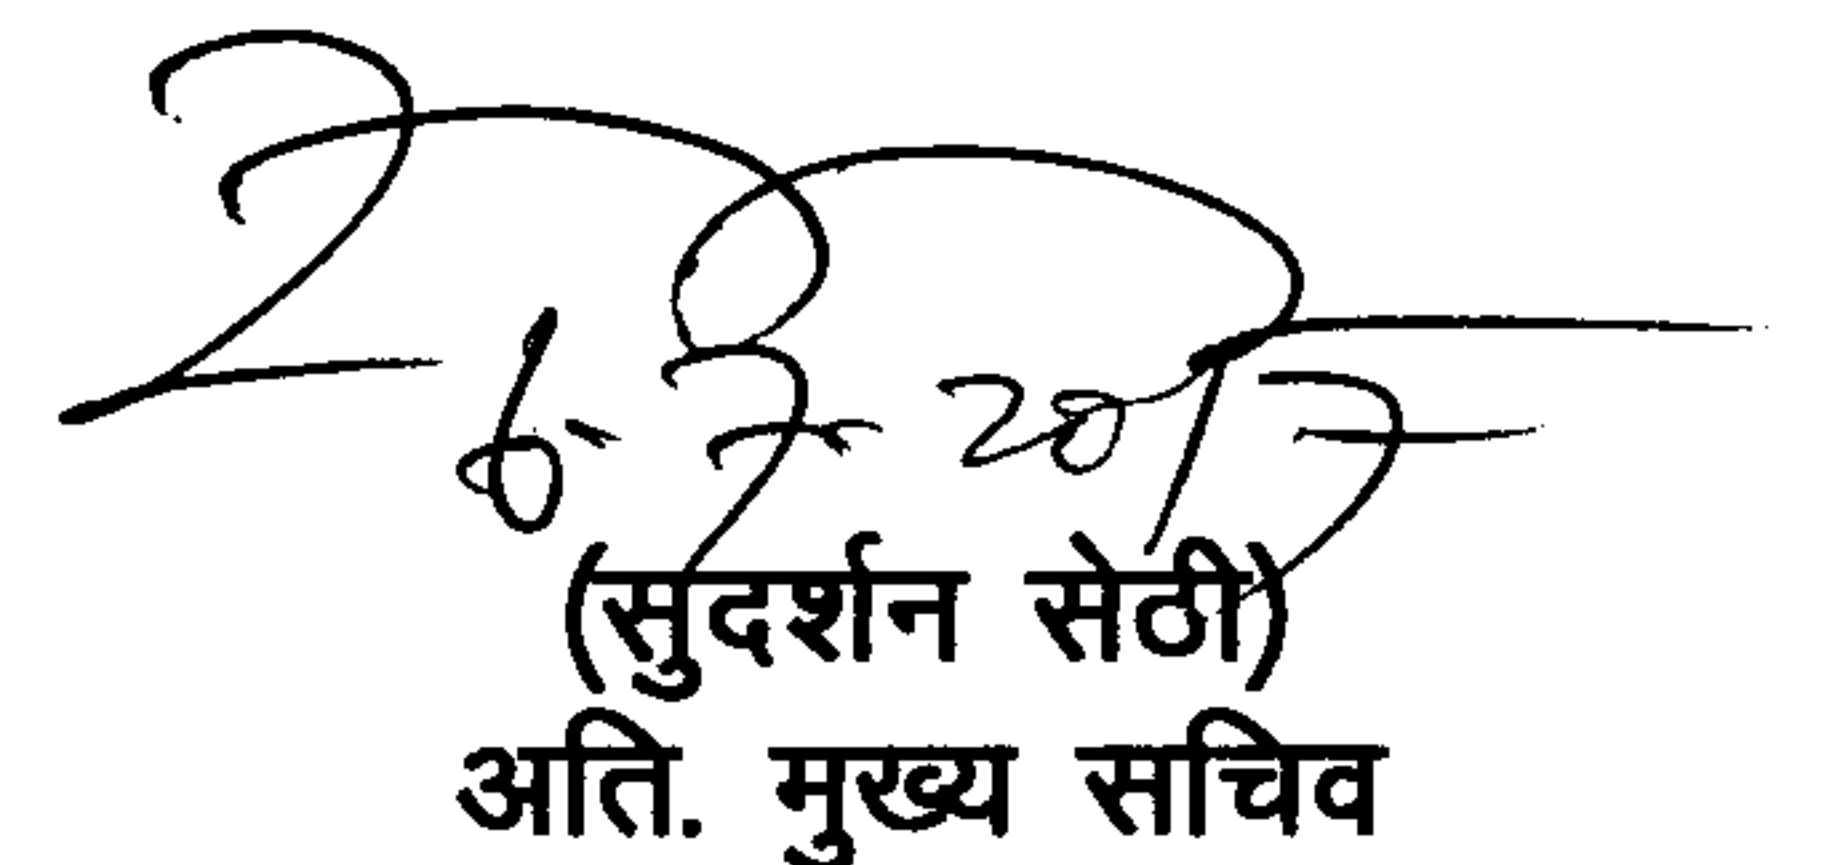 6-7-2017
(सुदर्शन सेठी)
अति. मुख्य सचिव